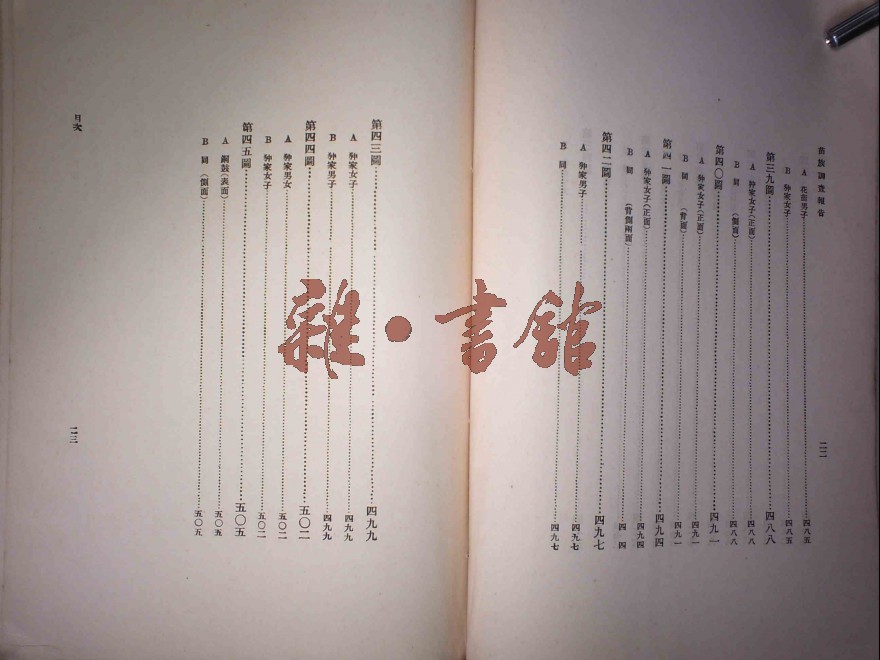 苗族調查報告
二二
A 花苗男子 四八五
B 狆家女子 四八五
第三九圖 四八八
A 狆家女子(正面) 四八八
B 同 (側面) 四八八
第四〇圖 四九一
A 狆家女子(正面) 四九一
B 同 (背面) 四九一
第四一圖 四九四
A 狆家女子(正面) 四九四
B 同 (背側兩面) 四 四
第四二圖 四九七
A 狆家男子 四九七
B 同 四九七
第四三圖 四九九
A 狆家女子 四九九
B 狆家男子 四九九
第四四圖 五〇二
A 狆家男女 五〇二
B 狆家女子 五〇二
第四五圖 五〇五
A 銅鼓(表面) 五〇五
B 同 (側面) 五〇五
目次
二三
雜·書館